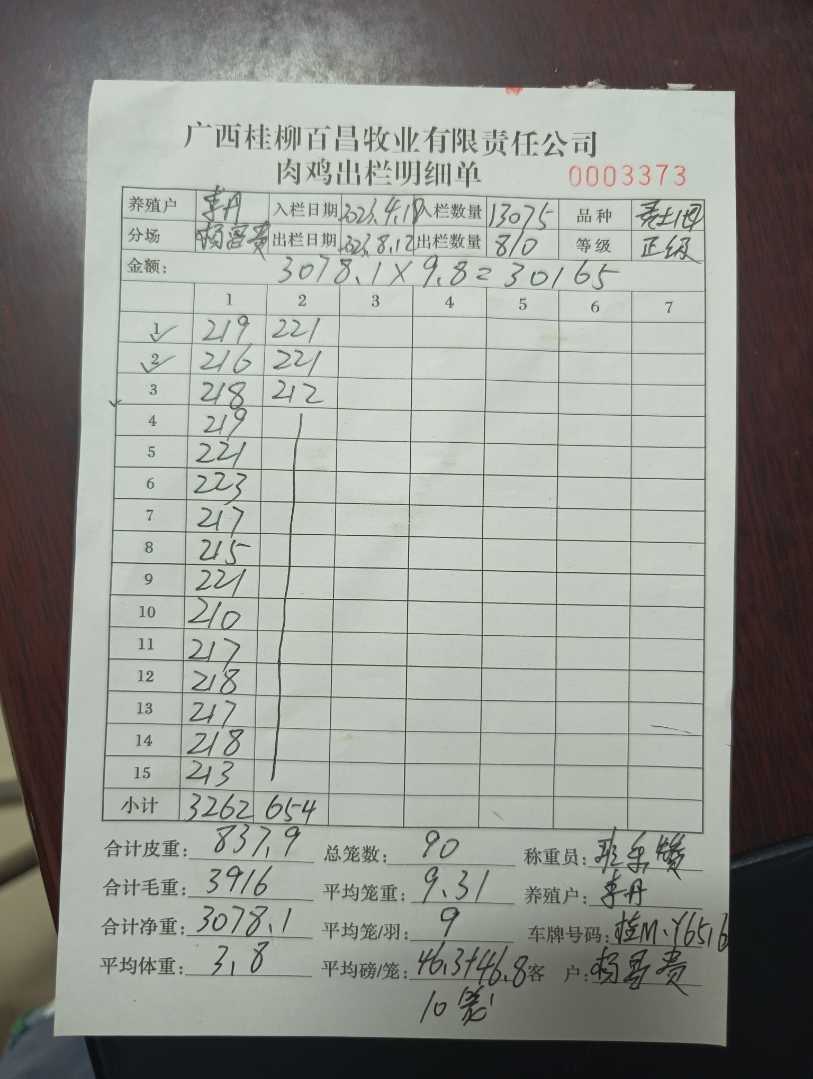 广西桂柳百昌牧业有限责任公司
肉鸡出栏明细单 0003373
养殖户 李丹 入栏日期 2023.4.19 入栏数量 13075 品种
分场 杨昌贵 出栏日期 2023.8.12 出栏数量 810 等级 正级
金额: 3078.1×9.8=30165
1 2 3 4 5 6 7
1 219 221
2 216 221
3 218 212
4 219
5 221
6 223
7 217
8 215
9 221
10 210
11 217
12 218
13 217
14 218
15 213
小计 3262 654
合计皮重: 837.9 总笼数: 90 称重员:
合计毛重: 3916 平均笼重: 9.31 养殖户: 李丹
合计净重: 3078.1 平均笼/羽: 9 车牌号码: 桂M·Y6516
平均体重: 3.8 平均磅/笼: 46.3+46.8 客 户: 杨昌贵
10笼